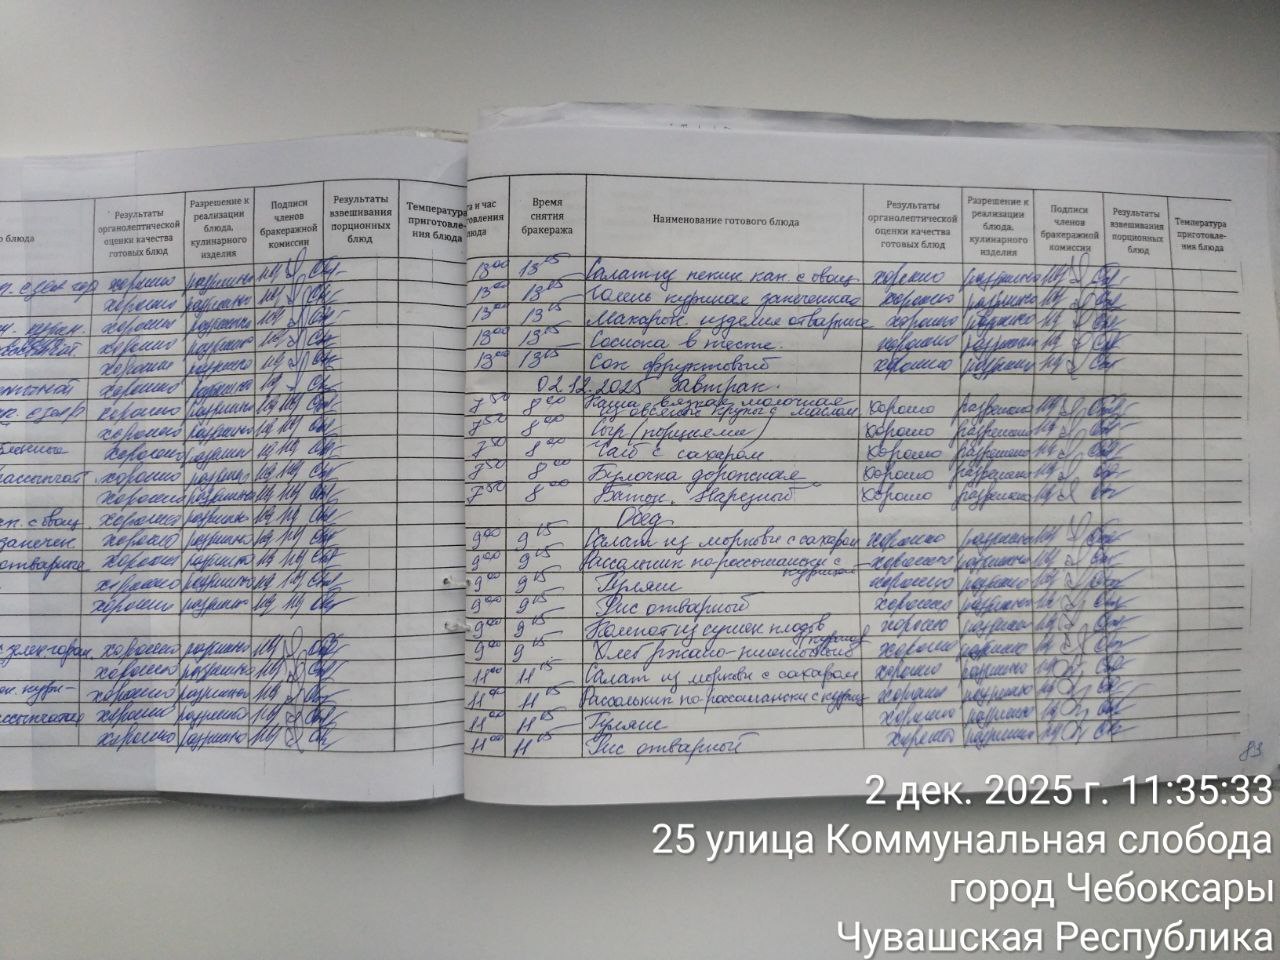 о блюда | Результаты органолептической оценки качества готовых блюд | Разрешение к реализации блюда, кулинарного изделия | Подписи членов бракеражной комиссии | Результаты взвешивания порционных блюд | Температура приготовле-ния блюда
хорошо разрешено
хорошо разрешено
хорошо разрешено
хорошо разрешено
хорошо разрешено
хорошо разрешено
хорошо разрешено
хорошо разрешено
хорошо разрешено
хорошо разрешено
хорошо разрешено
п. с овощ. хорошо разрешено
запечен. хорошо разрешено
отварные хорошо разрешено
хорошо разрешено
хорошо разрешено
хорошо разрешено
хорошо разрешено
хорошо разрешено
хорошо разрешено
хорошо разрешено
та и час товления люда | Время снятия бракеража | Наименование готового блюда | Результаты органолептической оценки качества готовых блюд | Разрешение к реализации блюда, кулинарного изделия | Подписи членов бракеражной комиссии | Результаты взвешивания порционных блюд | Температура приготовле-ния блюда
13 00 13 15 Салат из пекин кап. с овощ. хорошо разрешено
13 00 13 15 Голень куриная запеченная хорошо разрешено
13 00 13 15 Макарон. изделия отварные хорошо разрешено
13 00 13 15 Сосиска в тесте. хорошо разрешено
13 00 13 15 Сок фруктовый хорошо разрешено
02.12.2025 Завтрак.
7 50 8 00 Каша вязкая молочная из овсяной крупы с маслом хорошо разрешено
7 50 8 00 Сыр (порциями) хорошо разрешено
7 50 8 00 Чай с сахаром хорошо разрешено
7 50 8 00 Булочка дорожная хорошо разрешено
7 50 8 00 Батон Нарезной хорошо разрешено
Обед
9 00 9 15 Салат из моркови с сахаром хорошо разрешено
9 00 9 15 Рассольник по россошански с курицей хорошо разрешено
9 00 9 15 Гуляш хорошо разрешено
9 00 9 15 Рис отварной хорошо разрешено
9 00 9 15 Компот из сушен плодов хорошо разрешено
9 00 9 15 Хлеб ржано-пшеничный хорошо разрешено
11 00 11 15 Салат из моркови с сахаром хорошо разрешено
11 00 11 15 Рассольник по россошански с куриц хорошо разрешено
11 00 11 15 Гуляш хорошо разрешено
11 00 11 15 Рис отварной хорошо разрешено
83
2 дек. 2025 г. 11:35:33
25 улица Коммунальная слобода
город Чебоксары
Чувашская Республика